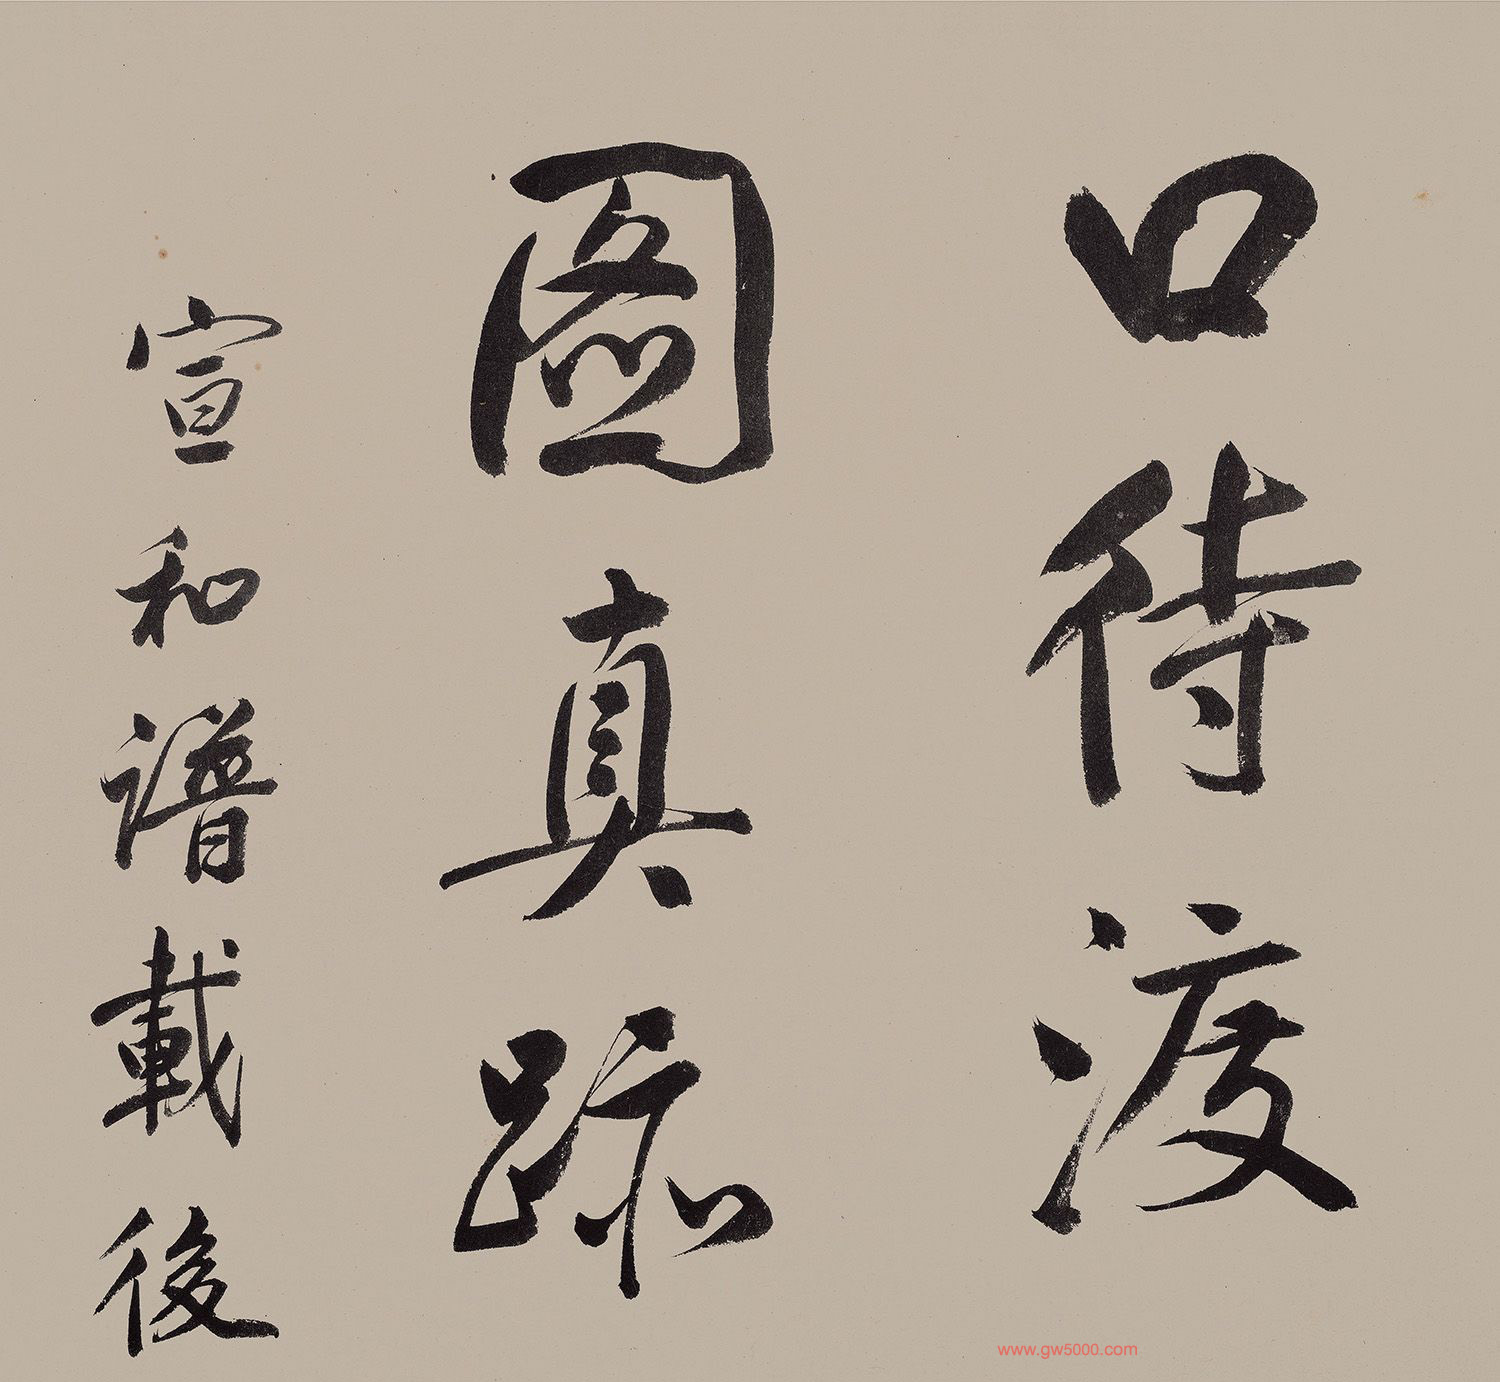 口待渡
圖真跡
宣和譜載後
www.gw5000.com